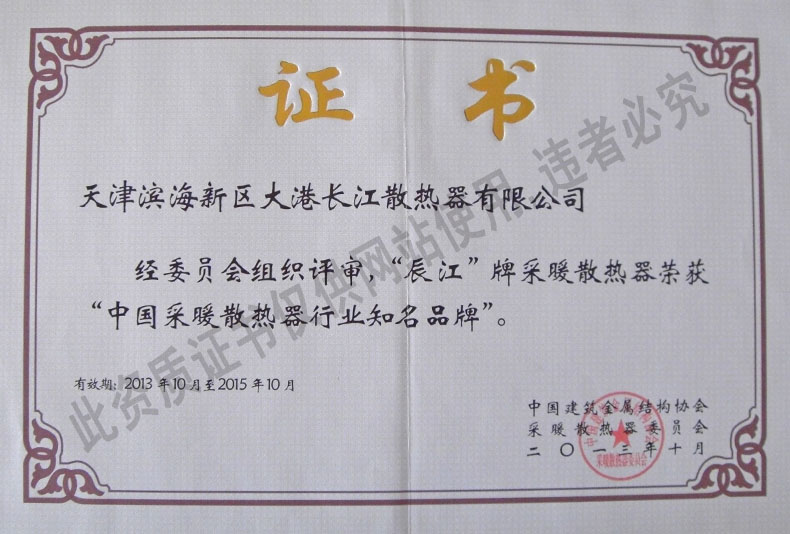 证书
天津滨海新区大港长江散热器有限公司
经委员会组织评审，“辰江”牌采暖散热器荣获
“中国采暖散热器行业知名品牌”。
有效期：2013年10月至2015年10月
中国建筑金属结构协会
采暖散热器委员会
二〇一三年十月
采暖散热器委员会
此资质证书仅供网站使用 违者必究